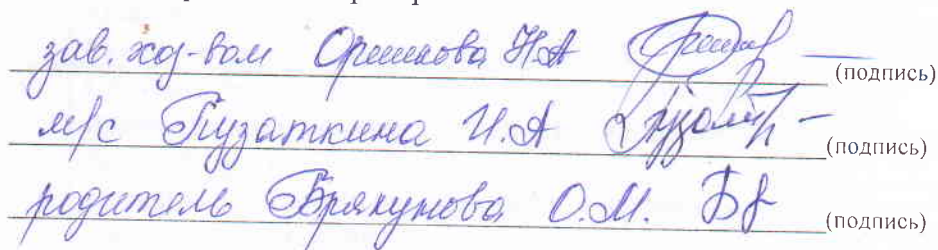 зав. хоз-вом Орешкова Н.А (подпись)
м/с Пузаткина И.А (подпись)
родитель Брякунова О.М. (подпись)